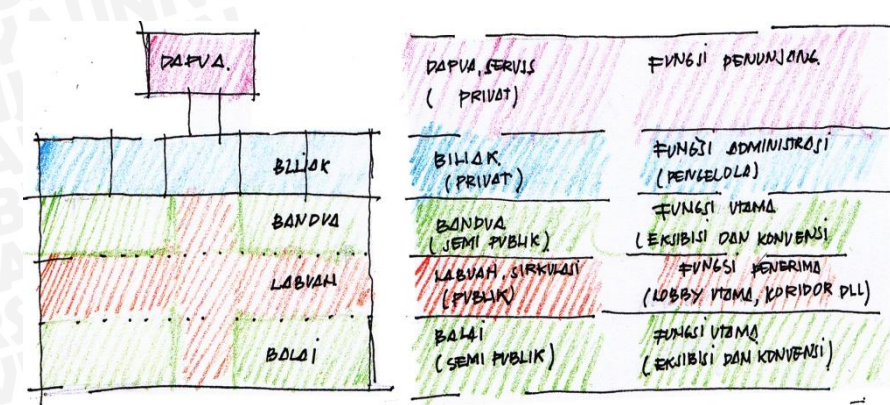 DAPUA.
BILIAK
BANDUA
LABUAH
BALAI
DAPUA, SERVIS
( PRIVAT)
FUNGSI PENUNJANG.
BILIAK
(PRIVAT)
FUNGSI ADMINISTRASI
(PENGELOLA)
BANDUA
(SEMI PUBLIK)
FUNGSI UTAMA
(EKSIBISI DAN KONVENSI
LABUAH, SIRKULASI
(PUBLIK)
FUNGSI PENERIMA
(LOBBY UTAMA, KORIDOR DLL)
BALAI
(SEMI PUBLIK)
FUNGSI UTAMA
(EKSIBISI DAN KONVENSI)